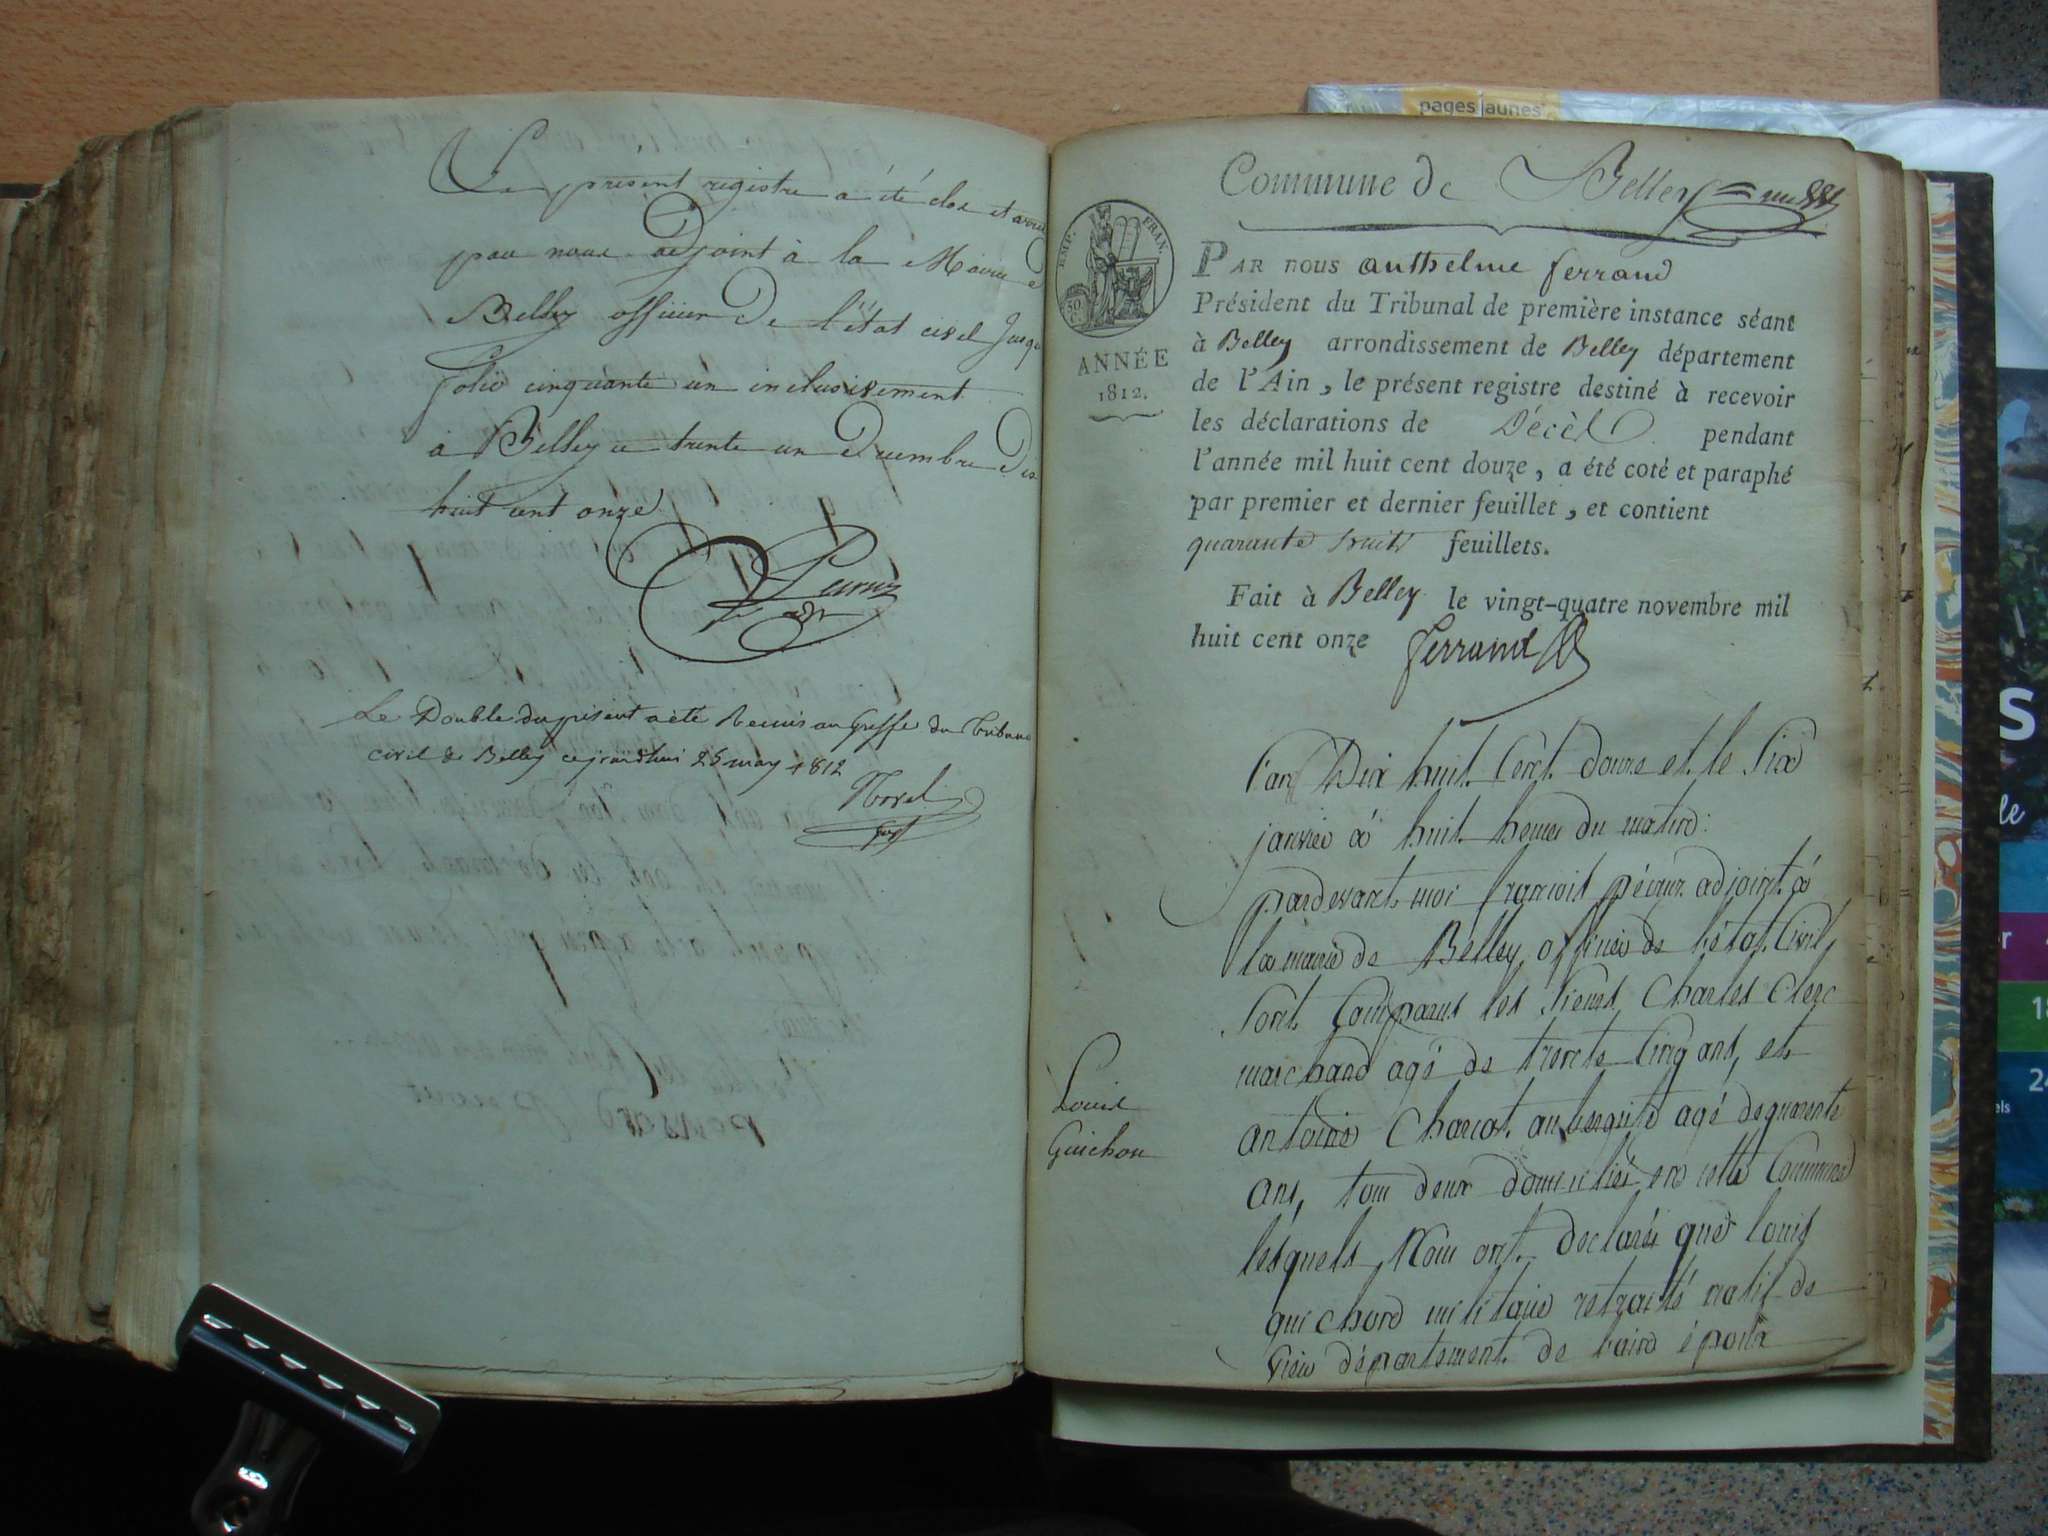 Le présent registre a été clos et arrêté
par nous adjoint à la Mairie de
Belley officier de l'état civil Jusqu
folio cinquante un inclusivement
à Belley ce trente un decembre dix
huit cent onze
adt
Le Double du present a été Remis au Greffe du Tribunal
civil de Belley cejourdhui 25 may 1812
Morel
pages jaunes
Commune de Belley
EMP. FRAN.
50
ANNÉE
1812.
PAR nous anthelme ferrand
Président du Tribunal de première instance séant
à Belley arrondissement de Belley département
de l'Ain, le présent registre destiné à recevoir
les déclarations de Décès pendant
l'année mil huit cent douze, a été coté et paraphé
par premier et dernier feuillet, et contient
quarante huit feuillets.
Fait à Belley le vingt-quatre novembre mil
huit cent onze ferrand
l'an Dix huit Cent douze et le Six
janvier à huit heures du matin
pardevant moi françois pécour adjoint à
la mairie de Belley officier de l'état Civil
Sont Comparus les Sieurs Charles Clerc
marchand agé de trente Cinq ans, et
antoine Charcot aubergiste agé de quarente
ans, tous deux domiciliés en cette Commune
lesquels Nous ont declaré que louis
guichon militaire retraité natif de
département de l'ain époux
Louis
Guichon